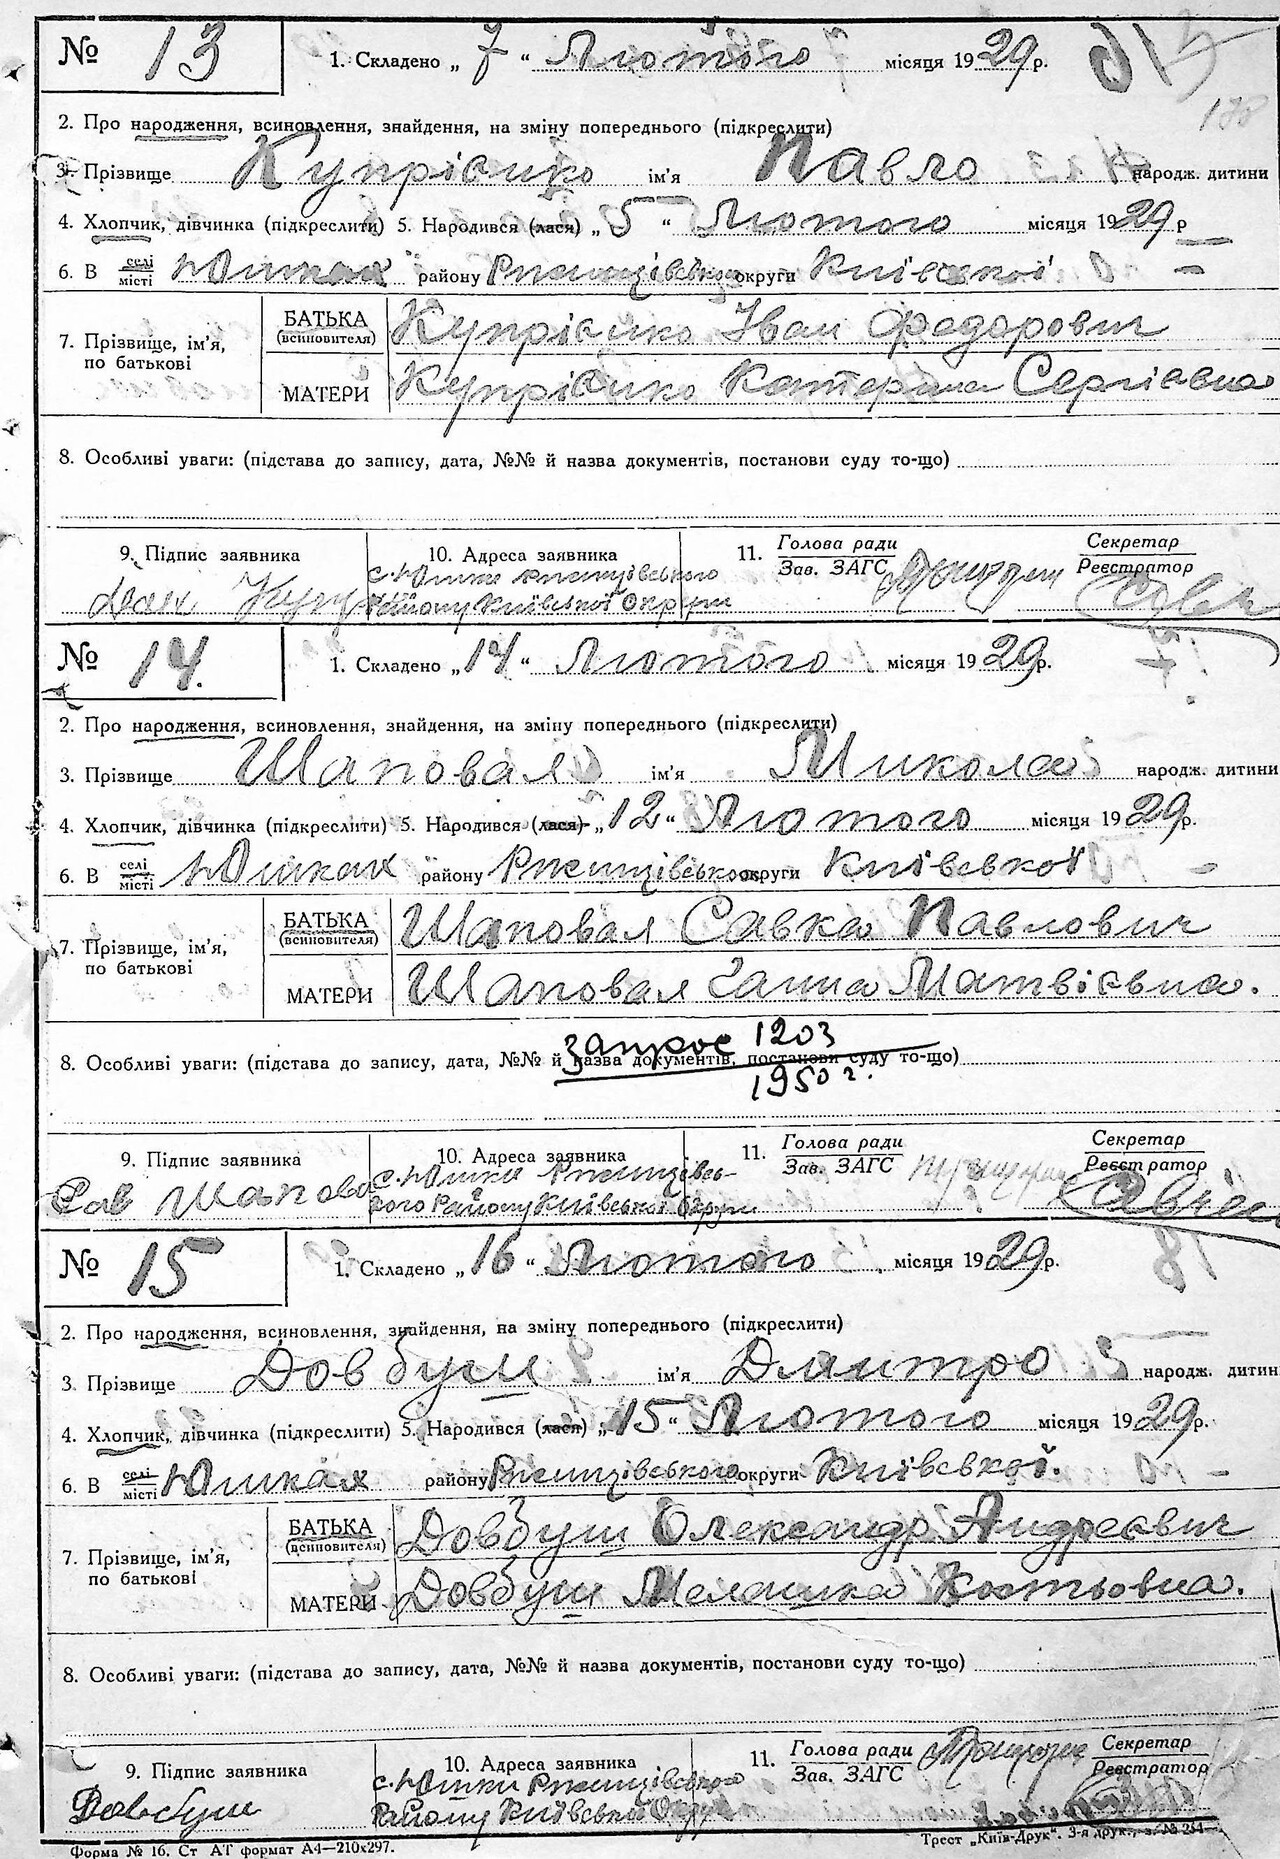 № 13 1. Складено „ 7 “ Лютого місяця 1929 р.
138
2. Про народження, всиновлення, знайдення, на зміну попереднього (підкреслити)
3. Прізвище Купріємко ім'я Павло народж. дитини
4. Хлопчик, дівчинка (підкреслити) 5. Народився (лася) „ 5 “ Лютого місяця 1929 р
6. В селі місті Юшках району Ржищівського округи Київської
7. Прізвище, ім'я, по батькові БАТЬКА (всиновителя) Купріємко Іван Федорович
МАТЕРИ Купріємко Катерина Сергієвна
8. Особливі уваги: (підстава до запису, дата, №№ й назва документів, постанови суду то-що)
9. Підпис заявника 10. Адреса заявника 11. Голова ради Зав. ЗАГС Секретар Реєстратор
с. Юшки Ржищівського
району Київської Округи
№ 14. 1. Складено „ 14 “ Лютого місяця 1929 р.
2. Про народження, всиновлення, знайдення, на зміну попереднього (підкреслити)
3. Прізвище Шаповал ім'я Микола народж. дитини
4. Хлопчик, дівчинка (підкреслити) 5. Народився (лася) „ 12 “ Лютого місяця 1929 р.
6. В селі місті Юшках району Ржищівського округи Київської
7. Прізвище, ім'я, по батькові БАТЬКА (всиновителя) Шаповал Савка Павлович
МАТЕРИ Шаповал Ганна Матвієвна.
8. Особливі уваги: (підстава до запису, дата, №№ й назва документів, постанови суду то-що)
запрос 1203
1950 г.
9. Підпис заявника 10. Адреса заявника 11. Голова ради Зав. ЗАГС Секретар Реєстратор
Сав Шапова с. Юшки Ржищівсь-
кого Району Київської Округи
№ 15 1. Складено „ 16 “ Лютого місяця 1929 р.
2. Про народження, всиновлення, знайдення, на зміну попереднього (підкреслити)
3. Прізвище Довбуш ім'я Дмитро народж. дитин
4. Хлопчик, дівчинка (підкреслити) 5. Народився (лася) „ 15 “ Лютого місяця 1929 р.
6. В селі місті Юшках району Ржищівського округи Київської.
7. Прізвище, ім'я, по батькові БАТЬКА (всиновителя) Довбуш Олександр Андреєвич
МАТЕРИ Довбуш Мелашка Костьовна.
8. Особливі уваги: (підстава до запису, дата, №№ й назва документів, постанови суду то-що)
9. Підпис заявника 10. Адреса заявника 11. Голова ради Зав. ЗАГС Секретар Реєстратор
Довбуш с. Юшки Ржищівського
Району Київської Округи
Форма № 16. Ст АТ формат А4—210х297. Трест „Київ-Друк“. 3-я друк.